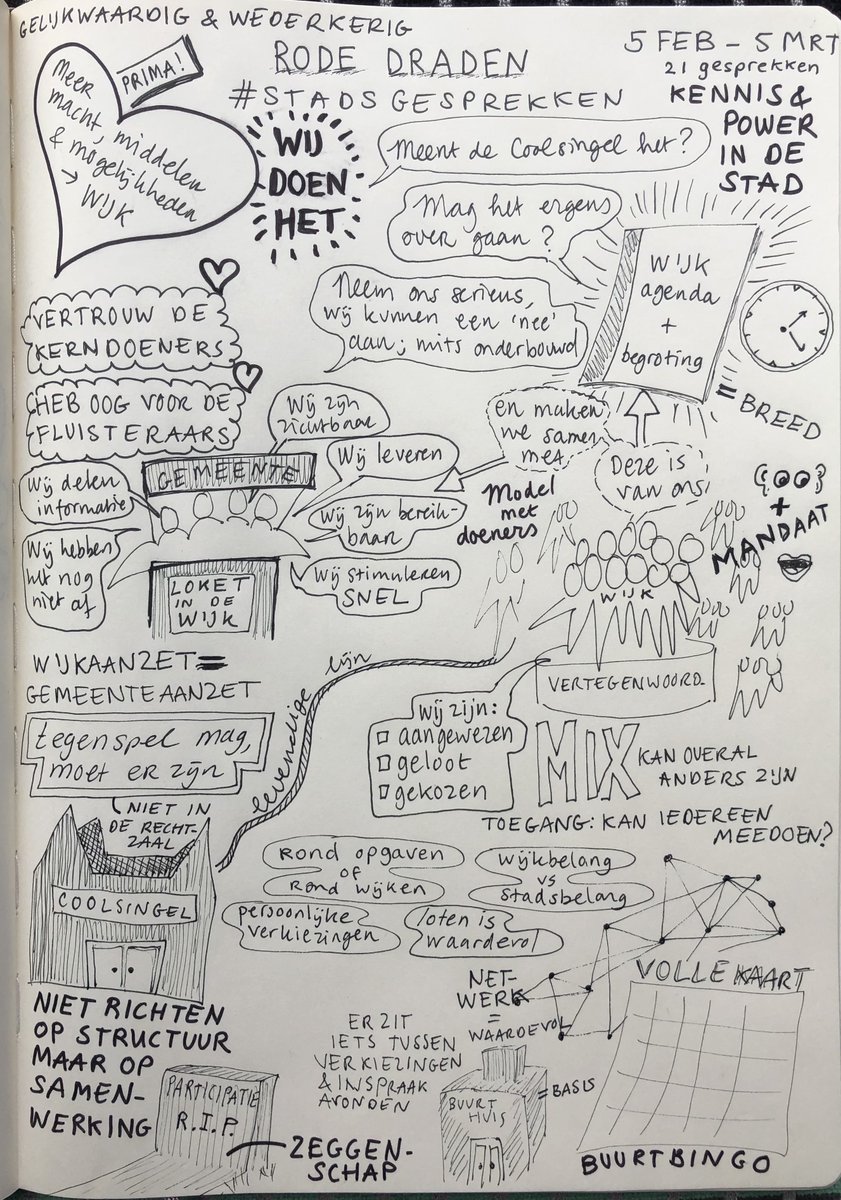 GELIJKWAARDIG & WEDERKERIG
RODE DRADEN
#STADSGESPREKKEN
5 FEB - 5 MRT
21 gesprekken
KENNIS &
POWER
IN DE
STAD
PRIMA!
Meer
macht, middelen
& mogelijkheden
→ WIJK
WIJ
DOEN
HET
Meent de Coolsingel het?
Mag het ergens
over gaan?
Neem ons serieus,
wij kunnen een 'nee'
aan; mits onderbouwd
WIJK
agenda
+
begroting
= BREED
VERTROUW DE
KERNDOENERS
HEB OOG VOOR DE
FLUISTERAARS
Wij zijn
zichtbaar
GEMEENTE
Wij delen
informatie
Wij leveren
Wij zijn bereik-
baar
Wij hebben
het nog
niet af
Wij stimuleren
SNEL
LOKET
IN DE
WIJK
en maken
we samen
met
Deze is
van ons
Model
met
doeners
+
MANDAAT
WIJK
VERTEGENWOORD.
WIJKAANZET =
GEMEENTEAANZET
levendige lijn
tegenspel mag,
moet er zijn
Wij zijn:
aangewezen
geloot
gekozen
MIX
KAN OVERAL
ANDERS ZIJN
TOEGANG: KAN IEDEREEN
MEEDOEN?
NIET IN
DE RECHT-
ZAAL
COOLSINGEL
Rond opgaven
of
Rond wijken
wijkbelang
vs
stadsbelang
persoonlijke
verkiezingen
loten is
waardevol
NET-
WERK
=
WAARDEVOL
VOLLE KAART
NIET RICHTEN
OP STRUCTUUR
MAAR OP
SAMEN-
WERKING
ER ZIT
IETS TUSSEN
VERKIEZINGEN
& INSPRAAK
AVONDEN
PARTICIPATIE
R.I.P.
ZEGGEN-
SCHAP
BUURT
HUIS
= BASIS
BUURTBINGO